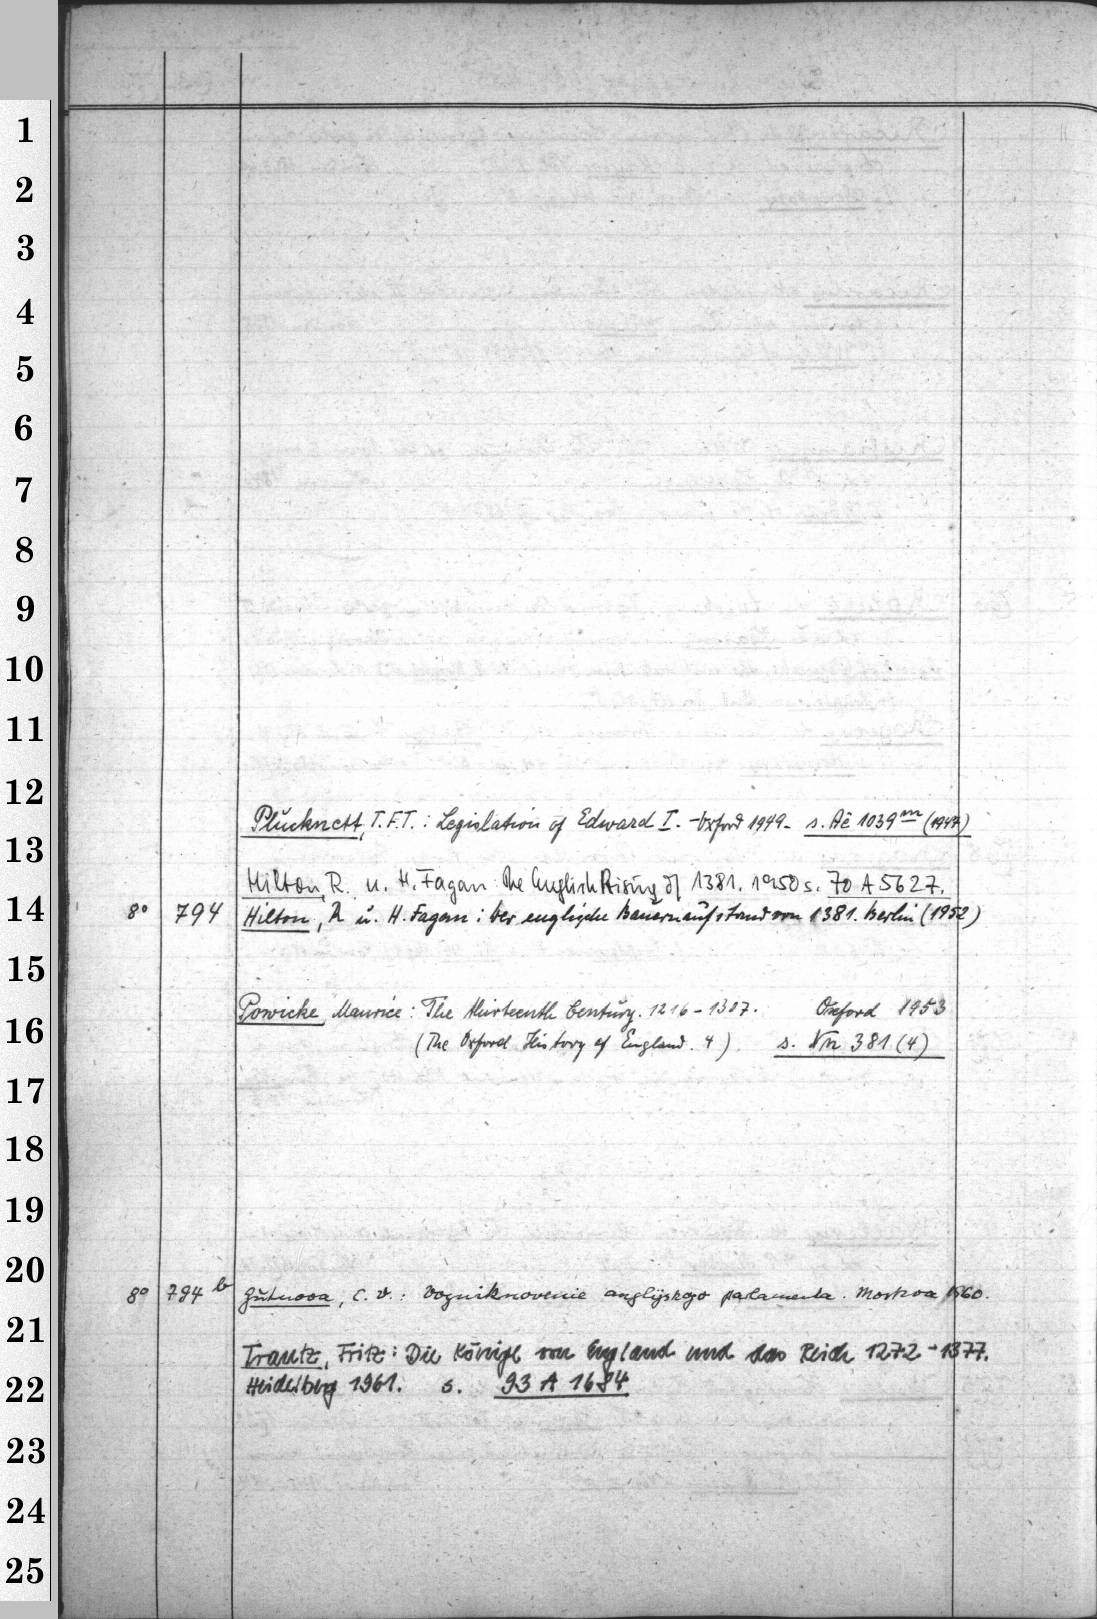 1
2
3
4
5
6
7
8
9
10
11
12
Plucknett, T.F.T.: Legislation of Edward I. - Oxford 1949. s. Aë 1039ᵐ (1947)
13
Hilton, R. u. H. Fagan: The English Rising of 1381. 1950 s. 70 A 5627.
14 8° 794 Hilton, R u. H. Fagan: Der englische Bauernaufstand von 1381. Berlin (1952)
15
Powicke, Maurice: The thirteenth Century. 1216-1307. Oxford 1953
16
(The Oxford History of England. 4) s. 381 (4)
17
18
19
20
8° 794 b Gutnova, E. V.: Vozniknovenie anglijskogo parlamenta. Moskva 1960.
21
Trautz, Fritz: Die Könige von England und das Reich 1272-1377.
22 Heidelberg 1961. s. 93 A 1684
23
24
25